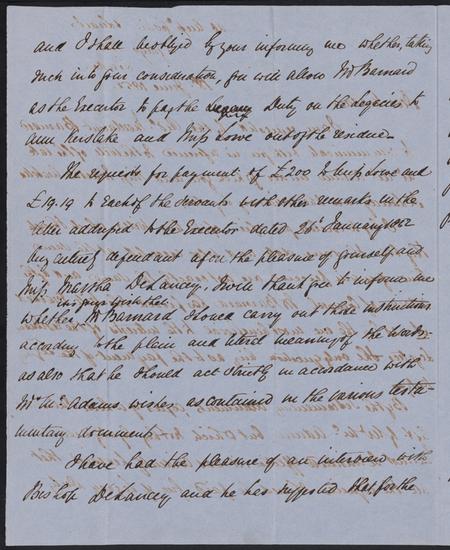 and I shall be obliged by your informing me whether, taking
such into your consideration, you will allow Mr Barnard
as the Executor to pay the Legacy Duty on the legacies to
Ann Kerslake and Miss Lowe out of the residue.
The requests for payment of £200 to Miss Lowe and
£19.19 to each of the Servants with other remarks in the
letter addressed to the Executor dated 26th January 1852
being entirely dependant upon the pleasure of yourself and
Miss Martha DeLancey, I will thank you to inform me
in your opinion
whether Mr Barnard should carry out those instructions
according to the plain and literal meaning of the words
as also that he should act strictly in accordance with
Mrs Mc Adams wishes as contained in the various testa
mentary documents.
I have had the pleasure of an interview with
Bishop DeLancey and he has suggested that for the